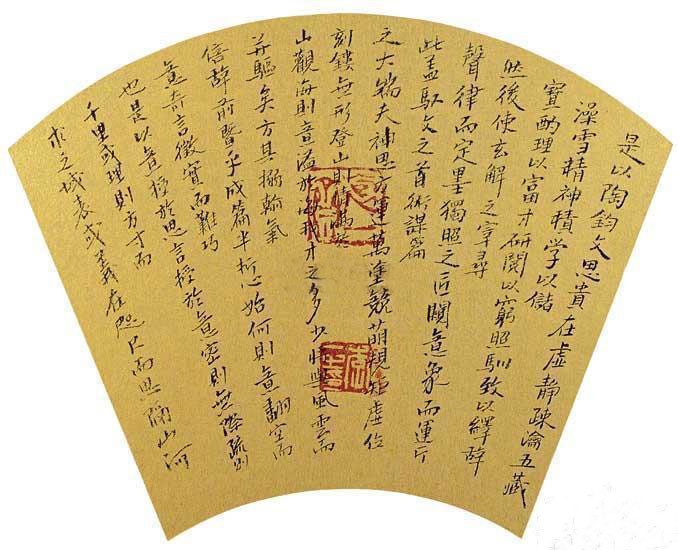 是以陶鈞文思貴在虛靜疎瀹五藏
澡雪精神積學以儲
寶酌理以富才研閱以窮照馴致以繹辭
然後使玄解之宰尋
聲律而定墨獨照之匠闚意象而運斤
此蓋馭文之首術謀篇
之大端夫神思方運萬塗競萌規矩虛位
刻鏤無形登山則情滿於
山觀海則意溢於海我才之多少將與風雲而
并驅矣方其搦翰氣
倍辭前暨乎成篇半折心始何則意翻空而
易奇言徵實而難巧
也是以意授於思言授於意密則無際疏則
千里或理則方寸而
求之域表或義在咫尺而思隔山河